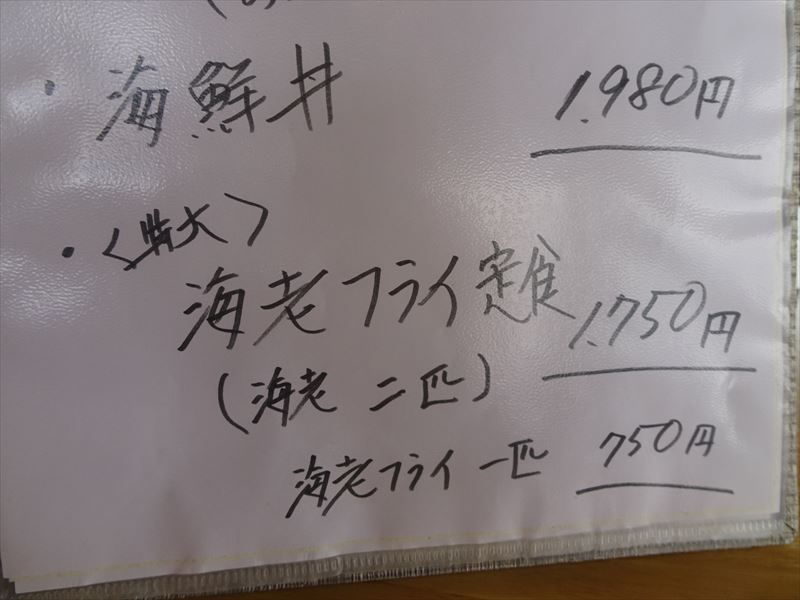 ・海鮮丼 1.980円
・<特大>
海老フライ定食 1.750円
(海老 二匹)
海老フライ 一匹 750円